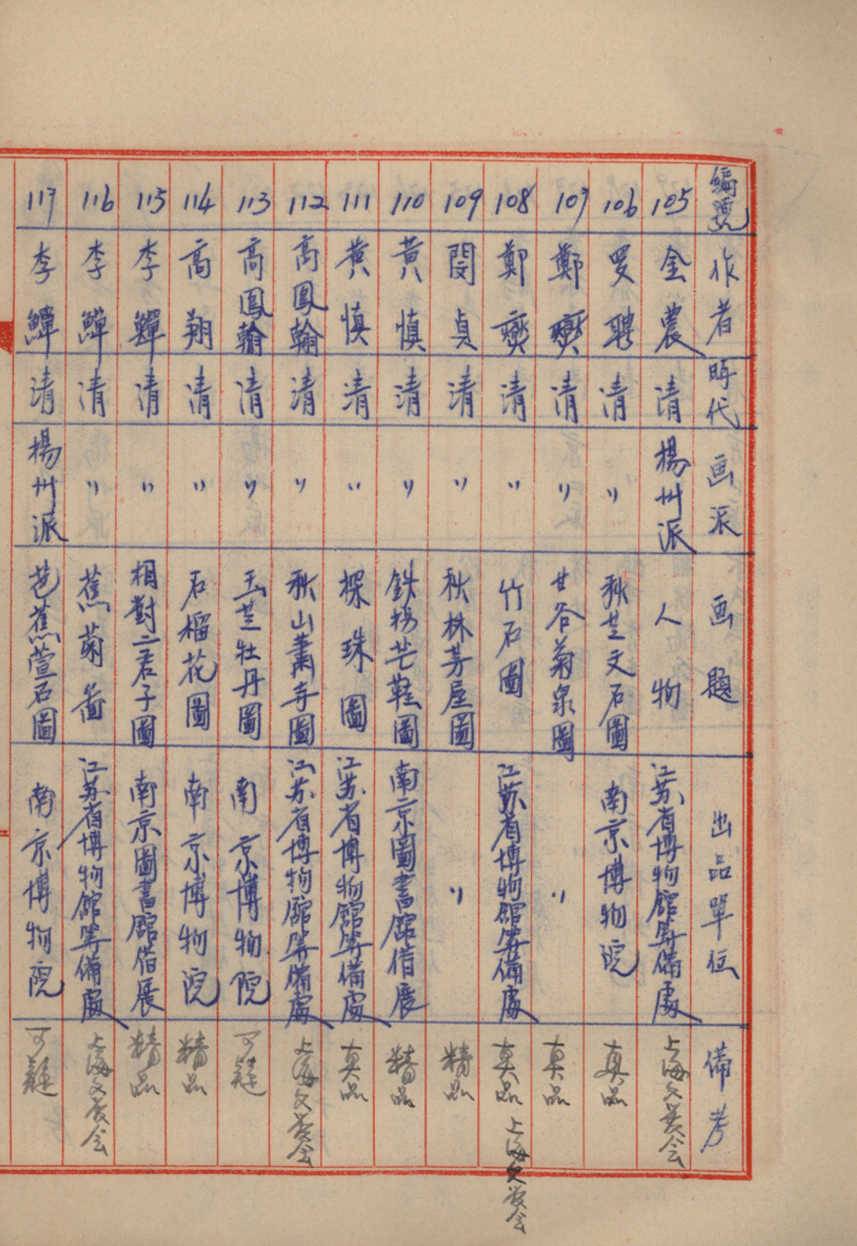 編號 作者 時代 画派 画題 出品單位 備考
105 金農 清 楊州派 人物 江苏省博物館筹備處 上海文管会
106 罗聘 清 〃 秋芝文石圖 南京博物院 真品
107 鄭燮 清 〃 甘谷菊泉圖 〃 真品
108 鄭燮 清 〃 竹石圖 江苏省博物館筹備處 真品 上海文管会
109 閔貞 清 〃 秋林芳屋圖 〃 精品
110 黄慎 清 〃 鉄拐芒鞋圖 南京圖書館借展 精品
111 黄慎 清 〃 探珠圖 江苏省博物館筹備處 真品
112 高鳳翰 清 〃 秋山蕭寺圖 江苏省博物館筹備處 上海文管会
113 高鳳翰 清 〃 玉芝牡丹圖 南京博物院 可疑
114 高翔 清 〃 石榴花圖 南京博物院 精品
115 李鱓 清 〃 相對二君子圖 南京圖書館借展 精品
116 李鱓 清 〃 蕉菊圖 江苏省博物館筹備處 上海文管会
117 李鱓 清 楊州派 芭蕉萱石圖 南京博物院 可疑